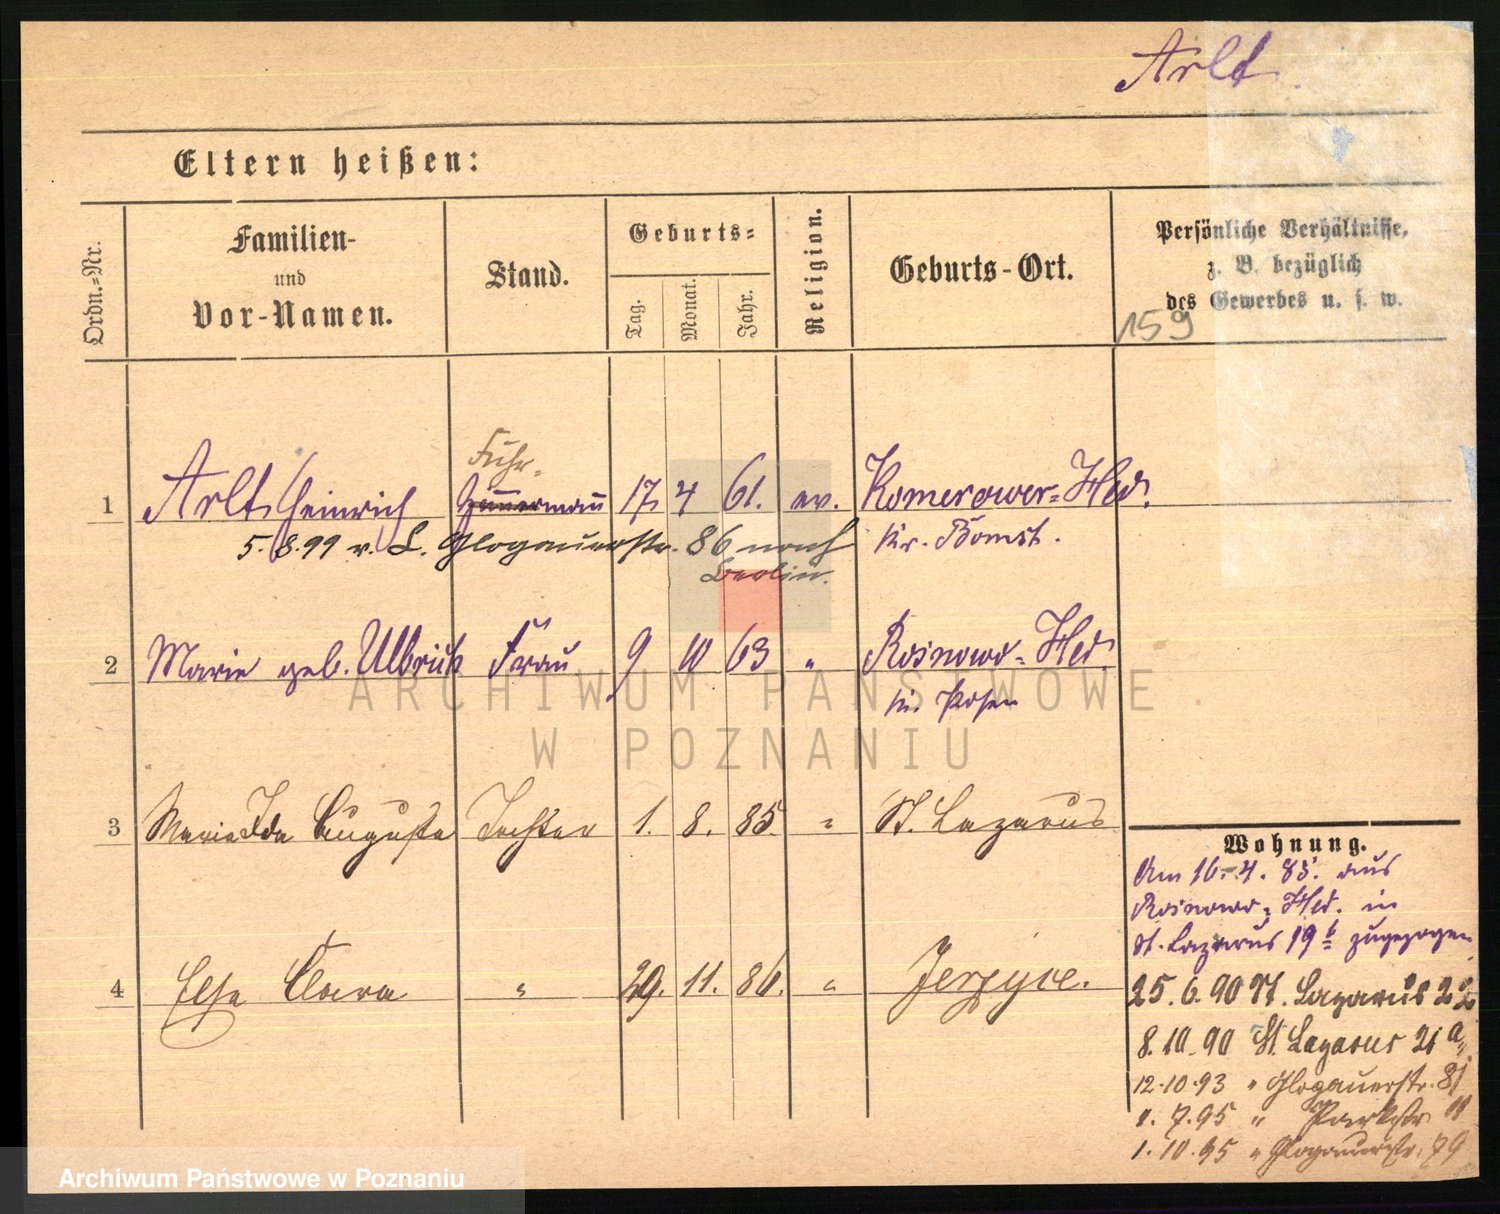 Arlt.
Eltern heißen:
Ordn.-Nr.
Familien-
und
Vor-Namen.
Stand.
Geburts-
Tag.
Monat.
Jahr.
Religion.
Geburts-Ort.
Persönliche Verhältnisse,
z. B. bezüglich
des Gewerbes u. s. w.
159
Fuhr-
1 Arlt Heinrich mann 17 4 61. ev. Komerower-Hld.
5.8.99 v. L. Glogauerstr. 86 nach Kr. Bomst.
Berlin.
2 Marie geb. Ulbrich Frau 9 10 63 " Rosnowo-Hld.
Posen
ARCHIWUM PAŃSTWOWE
W POZNANIU
3 Marie Ida Auguste Tochter 1. 8. 85. " St. Lazarus
Wohnung.
Am 16.4.85. aus
Rosnowo-Hld. in
St. Lazarus 19 b zugezogen
4 Elsa Clara " 29. 11. 86. " Jerzyce.
25.6.90 St. Lazarus 22
8.10.90 St. Lazarus 21a
12.10.93 " Glogauerstr. 81
1.7.95 " Parkstr. 11
1.10.95 " Glogauerstr. 79
Archiwum Państwowe w Poznaniu